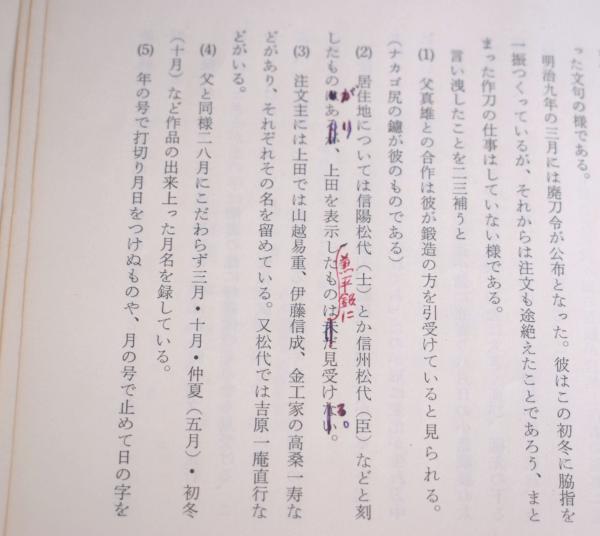 った文句の様である。
明治九年の三月には廃刀令が公布となった。彼はこの初冬に脇指を
一振つくっているが、それからは注文も途絶えたことであろう、まと
まった作刀の仕事はしていない様である。
言い洩したことを二三補うと
(1) 父真雄との合作は彼が鍛造の方を引受けていると見られる。
(ナカゴ尻の鑢が彼のものである)
(2) 居住地については信陽松代(士)とか信州松代(臣)などと刻
がり
したものはあるが、上田を表示したものは未だ見受けない。
兼平銘に
る。
(3) 注文主には上田では山越易重、伊藤信成、金工家の高桑一寿な
どがあり、それぞれその名を留めている。又松代では吉原一庵直行な
どがいる。
(4) 父と同様二八月にこだわらず三月・十月・仲夏(五月)・初冬
(十月)など作品の出来上った月名を録している。
(5) 年の号で打切り月日をつけぬものや、月の号で止めて日の字を